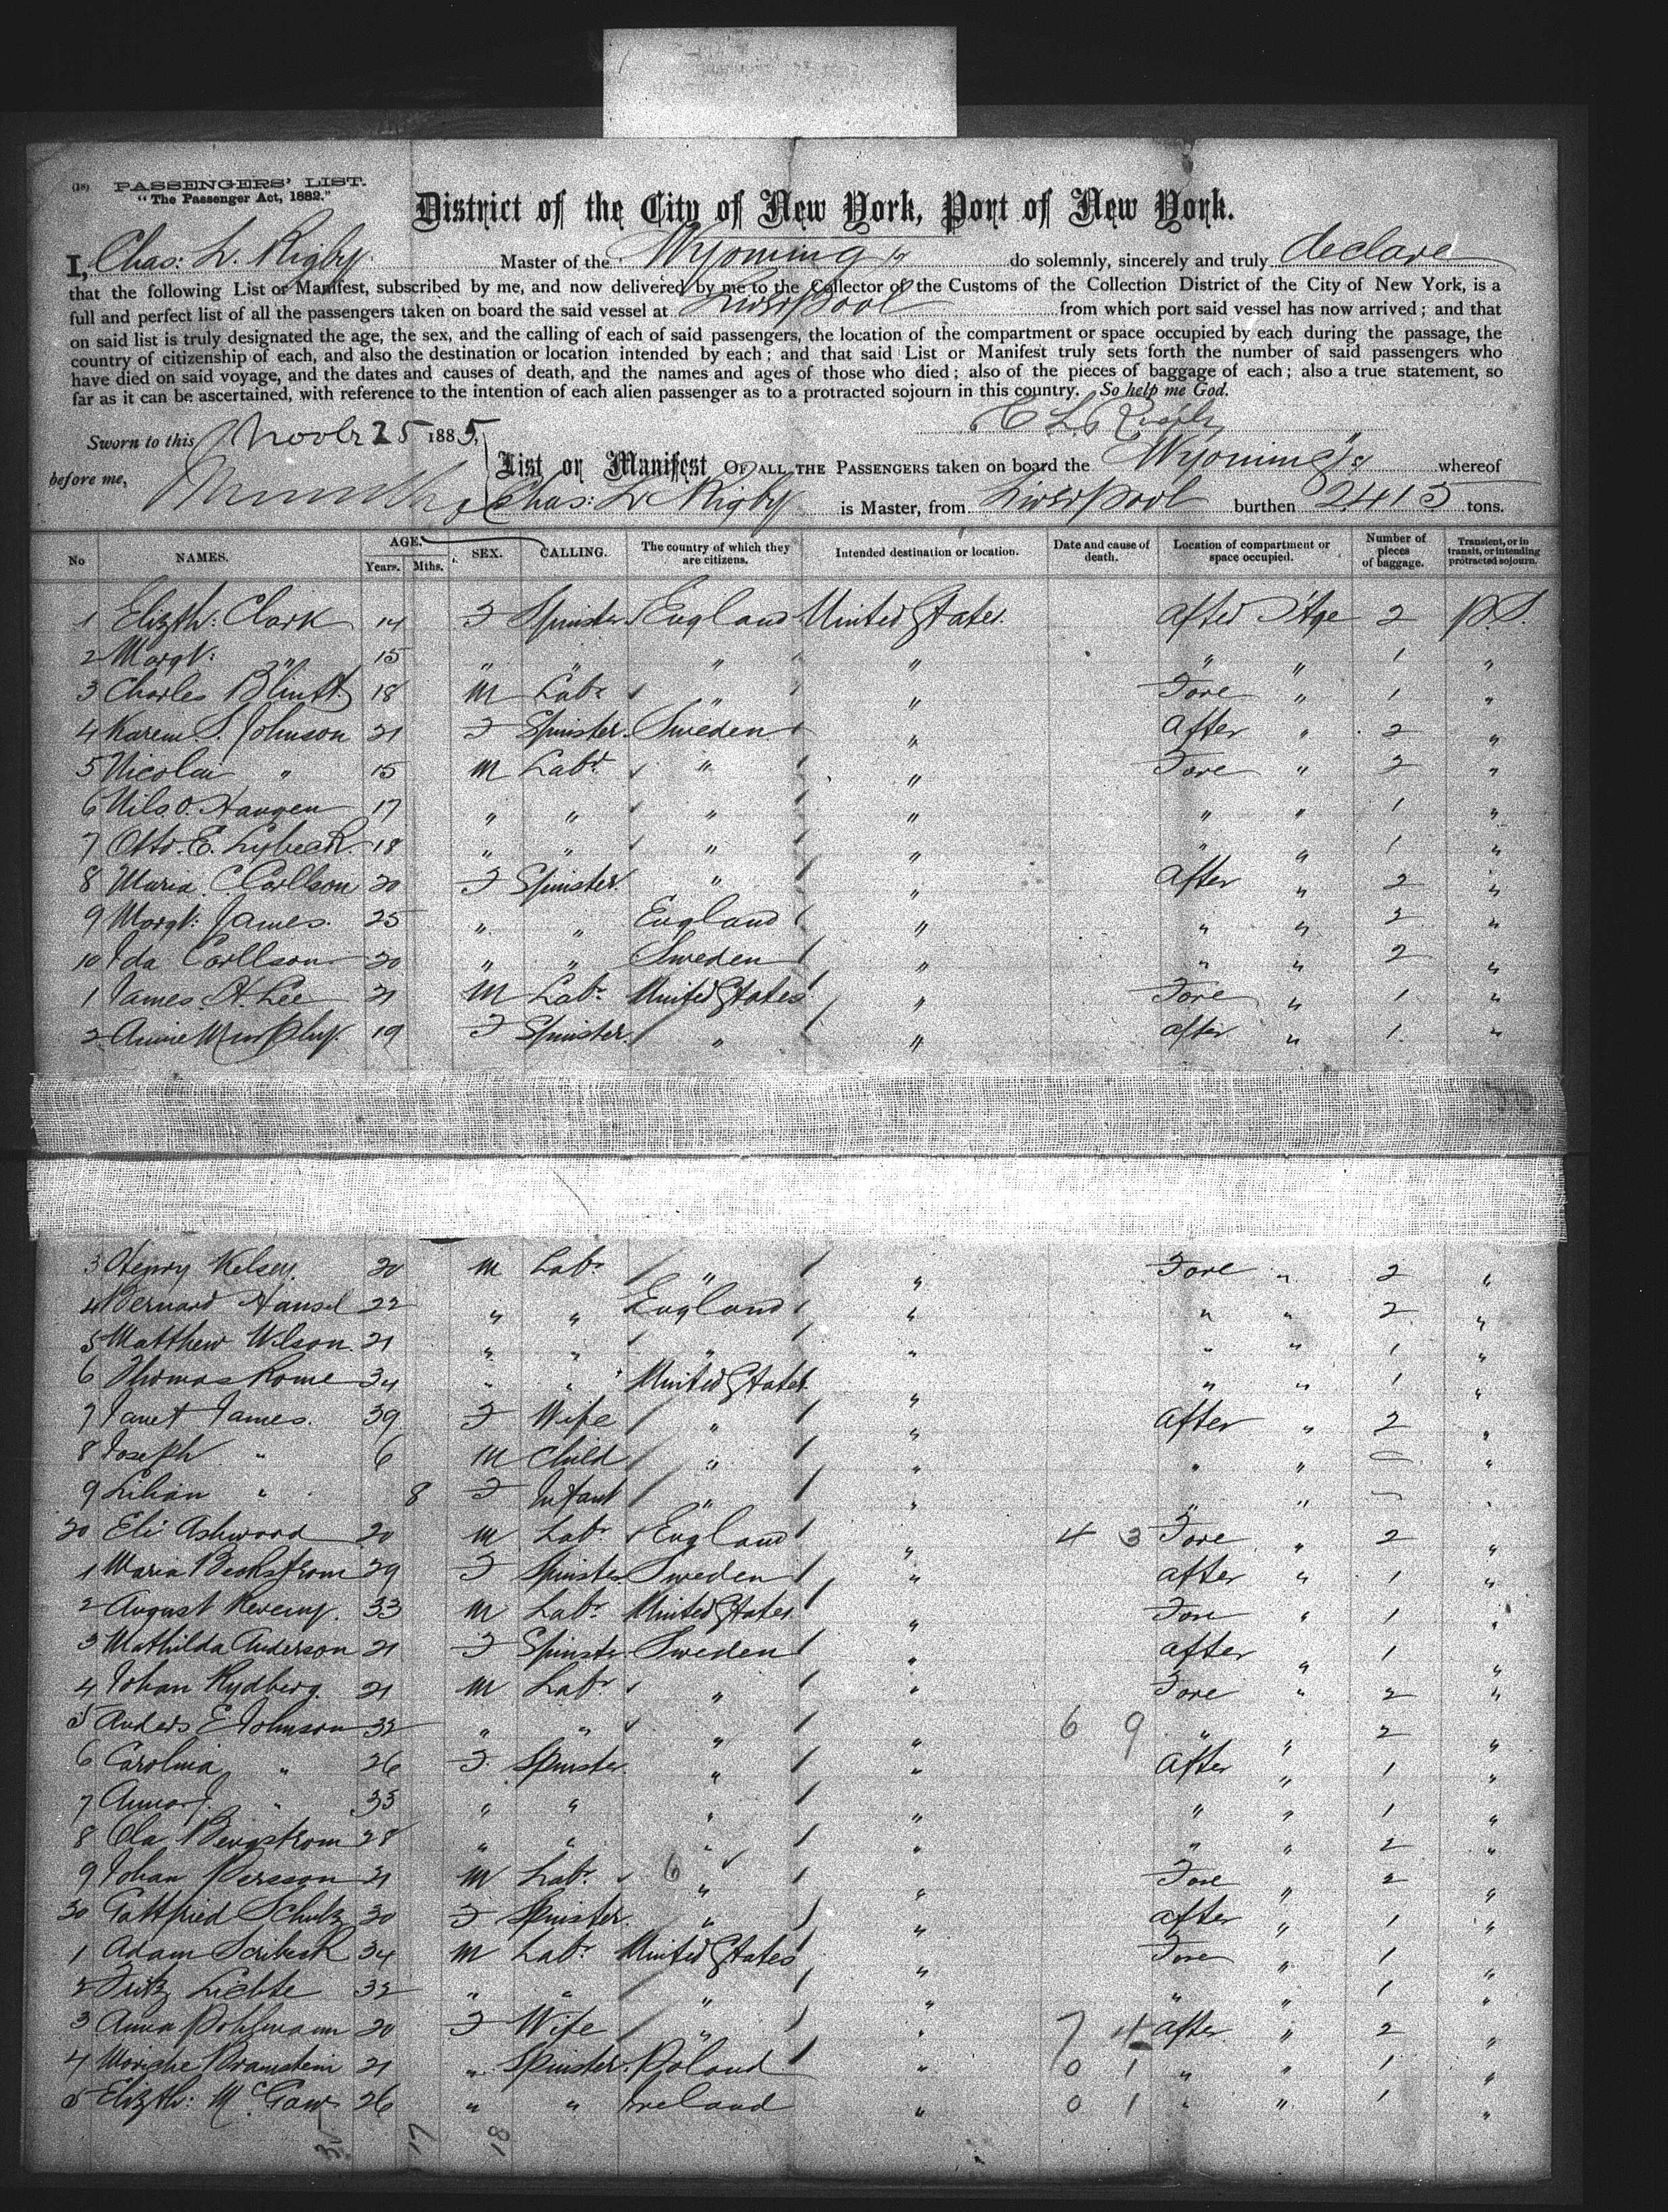 (18) PASSENGERS' LIST.
"The Passenger Act, 1882."
District of the City of New York, Port of New York.
I, Chas: L. Rigby Master of the Wyoming do solemnly, sincerely and truly declare
that the following List or Manifest, subscribed by me, and now delivered by me to the Collector of the Customs of the Collection District of the City of New York, is a
full and perfect list of all the passengers taken on board the said vessel at Liverpool from which port said vessel has now arrived; and that
on said list is truly designated the age, the sex, and the calling of each of said passengers, the location of the compartment or space occupied by each during the passage, the
country of citizenship of each, and also the destination or location intended by each; and that said List or Manifest truly sets forth the number of said passengers who
have died on said voyage, and the dates and causes of death, and the names and ages of those who died; also of the pieces of baggage of each; also a true statement, so
far as it can be ascertained, with reference to the intention of each alien passenger as to a protracted sojourn in this country. So help me God.
C L Rigby
Sworn to this Novbr 25 1885,
before me,
List or Manifest OF ALL THE PASSENGERS taken on board the "Wyoming" whereof
Chas: L Rigby is Master, from Liverpool burthen 2415 tons.
No NAMES. AGE. Years. Mths. SEX. CALLING. The country of which they are citizens. Intended destination or location. Date and cause of death. Location of compartment or space occupied. Number of pieces of baggage. Transient, or in transit, or intending protracted sojourn.
1 Elizth: Clark 14 F Spinster England United States. After Stge 2 P.S.
2 Margt: " 15 " " " " " " 1 "
3 Charles 18 M Labr " " Fore " 1 "
4 Karem S. Johnson 21 F Spinster. Sweden " After " 2 "
5 Nicolai " 15 M Labr " " Fore " 2 "
6 Nils O. Haugen 17 " " " " " " 1 "
7 Otto. E. 18 " " " " " " 1 "
8 Maria C. Carllson 20 F Spinster. " " After " 2 "
9 Margt: James. 25 " " England " " " 2 "
10 Ida Carllson 20 " " Sweden " " " 2 "
1 James H. Lee 21 M Labr United States " Fore " 1 "
2 Annie Murphy. 19 F Spinster. " " after " 1. "
3 Henry Kelsey. 20 M Labr " " Fore " 2 "
4 Bernard Hansel 22 " " England " " " 2 "
5 Matthew Wilson. 21 " " " " " " 1 "
6 Thomas Rome 34 " " United States " " " 1 "
7 Janet James. 39 F Wife " " After " 2 "
8 Joseph " 6 M Child " " " " — "
9 Lilian " 8 F Infant " " " " — "
20 Eli Ashwood 20 M Labr England " 4 3 Fore " 2 "
1 Maria Beckstrom 29 F Spinster Sweden " after " 1 "
2 August 33 M Labr United States " Fore " 1 "
3 Mathilda Anderson 21 F Spinster Sweden " after " 1 "
4 Johan Rydberg. 21 M Labr " " Fore " 2 "
5 Anders E. Johnson 32 " " " " 6 9 " " 2 "
6 Carolina " 26 F Spinster " " After " 1 "
7 Anna J. " 33 " " " " " " 1 "
8 Ola Bengstrom 28 " " " " " " 2 "
9 Johan Persson 21 M Labr 6 " " Fore " 2 "
30 Gottfried Schulz 30 F Spinster. " " after " 1 "
1 Adam 34 M Labr United States " Fore " 1 "
2 Fritz Liechte 32 " " " " " " 1 "
3 Anna Pohlmann 20 F Wife " " 7 4 after " 2 "
4 Braunstein 21 " Spinster. Poland " 0 1 " " 1 "
5 Elizth: McGaw 26 " " Ireland " 0 1 " " 1 "
35 17 18